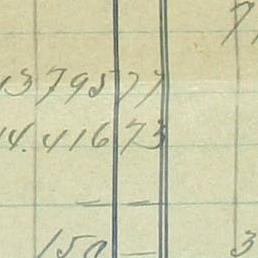 13795 77
14.416 73
150 —
3